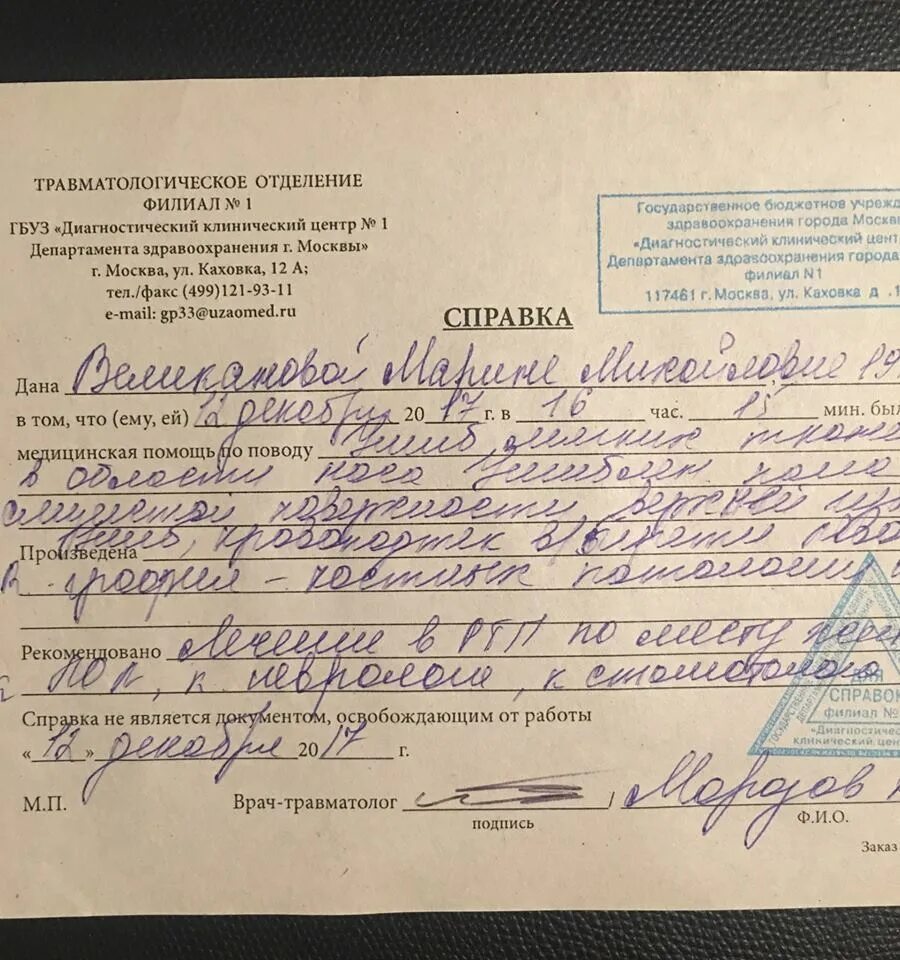 ТРАВМАТОЛОГИЧЕСКОЕ ОТДЕЛЕНИЕ
ФИЛИАЛ № 1
ГБУЗ «Диагностический клинический центр № 1
Департамента здравоохранения г. Москвы»
г. Москва, ул. Каховка, 12 А;
тел./факс (499)121-93-11
e-mail: gp33@uzaomed.ru
Государственное бюджетное учрежд
здравоохранения города Москв
«Диагностический клинический цент
Департамента здравоохранения города
филиал N1
117461 г. Москва, ул. Каховка д. 1
СПРАВКА
Дана Великановой Марине Михайловне, 19
в том, что (ему, ей) 12 декабря 2017 г. в 16 час. 15 мин. был
медицинская помощь по поводу Ушиб мягких ткане
в области носа Ушибленная
слизистой поверхности верхней
Ушиб, кровоподтек
Произведена
R графия - костных патологии
Рекомендовано Лечение в РТП по месту
к ЛОР, к неврологу, к стоматологу
Справка не является документом, освобождающим от работы
«12» декабря 2017 г.
ДЛЯ
СПРАВОК
филиал №
«Диагностичес
клинический цен
М.П. Врач-травматолог / Морозов
подпись Ф.И.О.
Заказ